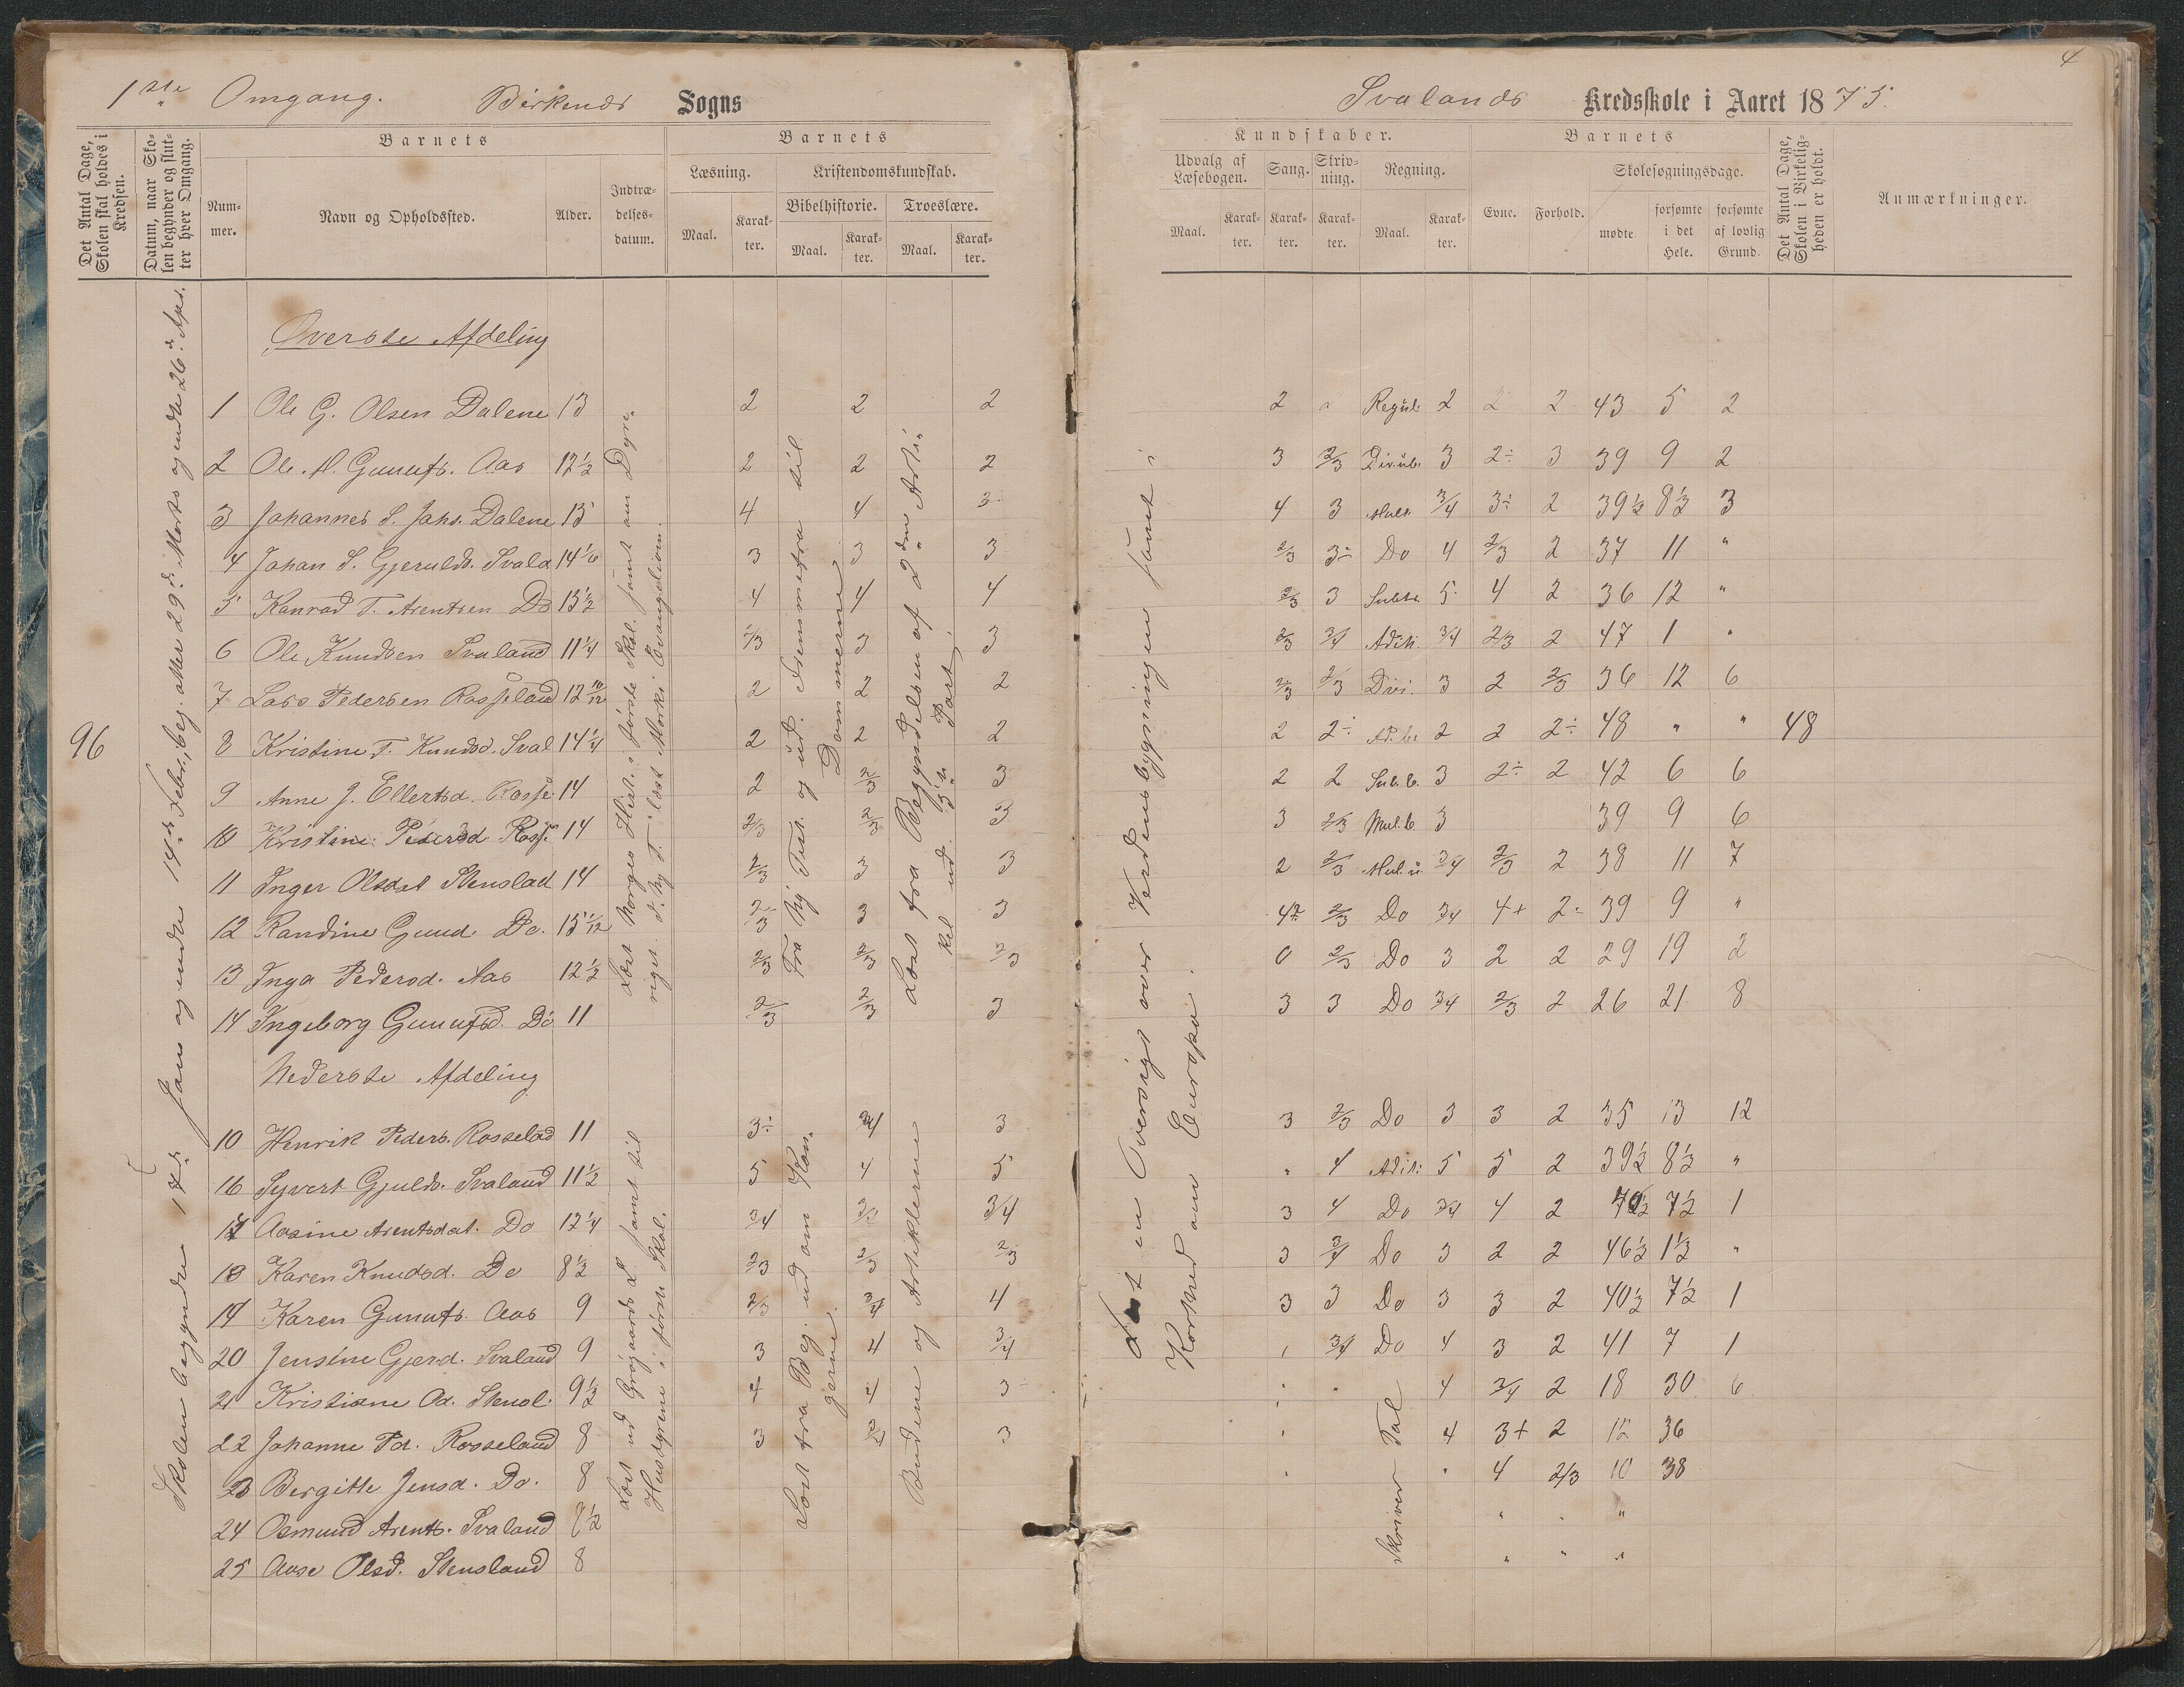 1ste Omgang. Birkenes Sogns
Svalands Kredsskole i Aaret 1875.
4
Det Antal Dage, Skolen skal holdes i Kredsen.
Datum, naar Skolen begynder og slutter hver Omgang.
Barnets
Nummer.
Navn og Opholdssted.
Alder.
Indtrædelsesdatum.
Barnets
Læsning.
Kristendomskundskab.
Bibelhistorie. Troeslære.
Maal. Karakter. Maal. Karakter. Maal. Karakter.
Kundskaber.
Udvalg af Læsebogen. Sang. Skrivning. Regning.
Maal. Karakter. Karakter. Karakter. Maal. Karakter.
Barnets
Evne. Forhold.
Skolesøgningsdage.
mødte forsømte i det Hele. forsømte af lovlig Grund.
Det Antal Dage, Skolen i Virkeligheden er holdt.
Anmærkninger.
96
Skolen begyndte 17de Jan. og endte 14de Febr., beg. atter 29de Marts og endte 26de Apr.
Læst Norges Hist. i første Skol. samt om Dyre-
riget. I. Ny T. læst Marki Evangelium.
Fra Ny Test. og ud. Fremmefra til
Dommerne
Læst fra Begyndelsen af 2den Arti-
kel ud. 3die Part
Læst en Oversigt over Verdensbygningen samt i
Korthed om Europa.
Øverste Afdeling
1 Ole G. Olsen Dalene 13 2 2 2 2 Regul. 2 2 2 43 5 2
2 Ole. H. Gunufs. Aas 12½ 2 2 2 3 2/3 Div.ub. 3 2÷ 3 39 9 2
3 Johannes S. Johs. Dalene 13 4 4 3 4 3 Mult. 3/4 3÷ 2 39½ 8½ 3
4 Johan S. Gjerulds. Svala 14 1/6 3 3 3 2/3 3÷ Do 4 2/3 2 37 11 "
5 Konrad T. Arentsen Do 13½ 4 4 4 2/3 3 Subtr. 5 4 2 36 12 "
6 Ole Knudsen Svaland 11¼ 2/3 3 3 2/3 3/4 Adit. 3/4 2/3 2 47 1 "
7 Lars Pedersen Rosseland 12 10/12 2 2 2 2/3 2/3 Divi. 3 2 2/3 36 12 6
8 Kristine T. Knudsd. Sval 14¼ 2 2 2 2 2÷ Ad.be 2 2 2÷ 48 " " 48
9 Anne J. Ellertsd. Rosse 14 2 2/3 3 2 2 Sub.b. 3 2÷ 2 42 6 6
10 Kristine Pedersd Ross. 14 2/3 2/3 3 3 2/3 Mul.b. 3 39 9 6
11 Inger Olsdat Stenslad 14 2/3 3 3 2 2/3 Mul.u. 3/4 2/3 2 38 11 7
12 Randine Gund. Do. 13 1/12 2/3 3 3 2/3 Do 3/4 4+ 2÷ 39 9 "
13 Inga Pedersd. Aas 12½ 2/3 2/3 2/3 0 2/3 Do 3 2 2 29 19 2
14 Ingeborg Gunufsd. Do 11 2/3 2/3 3 3 3 Do 3/4 2/3 2 26 21 8
Nederste Afdeling
Læst ud Grøgaards L. samt til
Husdyrene i første Skol.
Læst fra Beg. ud om Kon-
gerne.
Budene og Artiklerne
10 Henrik Peders. Rosselad 11 3÷ 3/4 3 3 2/3 Do 3 3 2 35 13 12
16 Syvert Gjulds. Svaland 11½ 5 4 5 " 4 Adit: 5 5 2 39½ 8½ "
17 Aasine Arentsdat. Do 12¼ 3/4 3/4 3 4 Do 3/4 4 2 40½ 7½ 1
18 Karen Knudsd. Do 8½ 2/3 2/3 2/3 3 3/4 Do 3 2 2 46½ 1½ "
19 Karen Gunufs. Aas 9 2/3 3/4 4 3 3 Do 3 3 2 40½ 7½ 1
20 Jensine Gjerd. Svaland 9 3 4 3/4 3/4 Do 4 3 2 41 7 1
21 Kristiane Od. Stensl. 9½ 4 4 3 4 3/4 2 18 30 6
22 Johanne Pd. Rosseland 8 3 3 4 3+ 2 12 36
23 Bergitte Jensd. Do. 8 " 4 2/3 10 38
24 Osmund Arents. Svaland 8½ " " "
25 Aase Olsd. Stensland 8 " " "
Skriver Tal